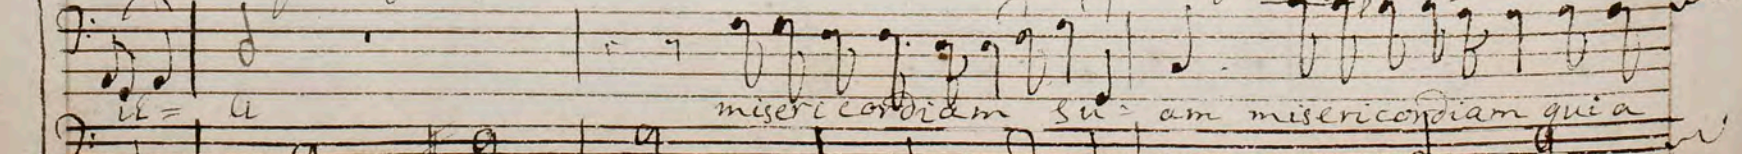 li = a misericordiam su = am misericordiam quia